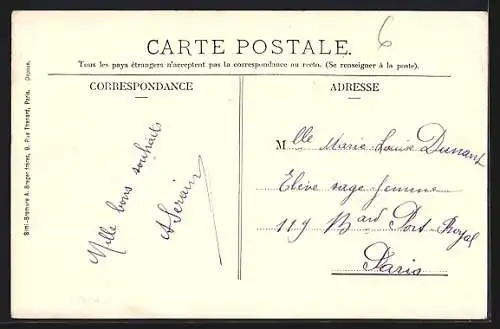 6
CARTE POSTALE.
Tous les pays étrangers n'acceptent pas la correspondance au recto. (Se renseigner à la poste).
CORRESPONDANCE
ADRESSE
Simi-Bromure A. Breger frères, 9, Rue Thénard, Paris. Déposé.
Mille bons souhaits
A Serain
Mlle Marie Louise Dunant
Elève sage femme
119 Bard Port-Royal
Paris